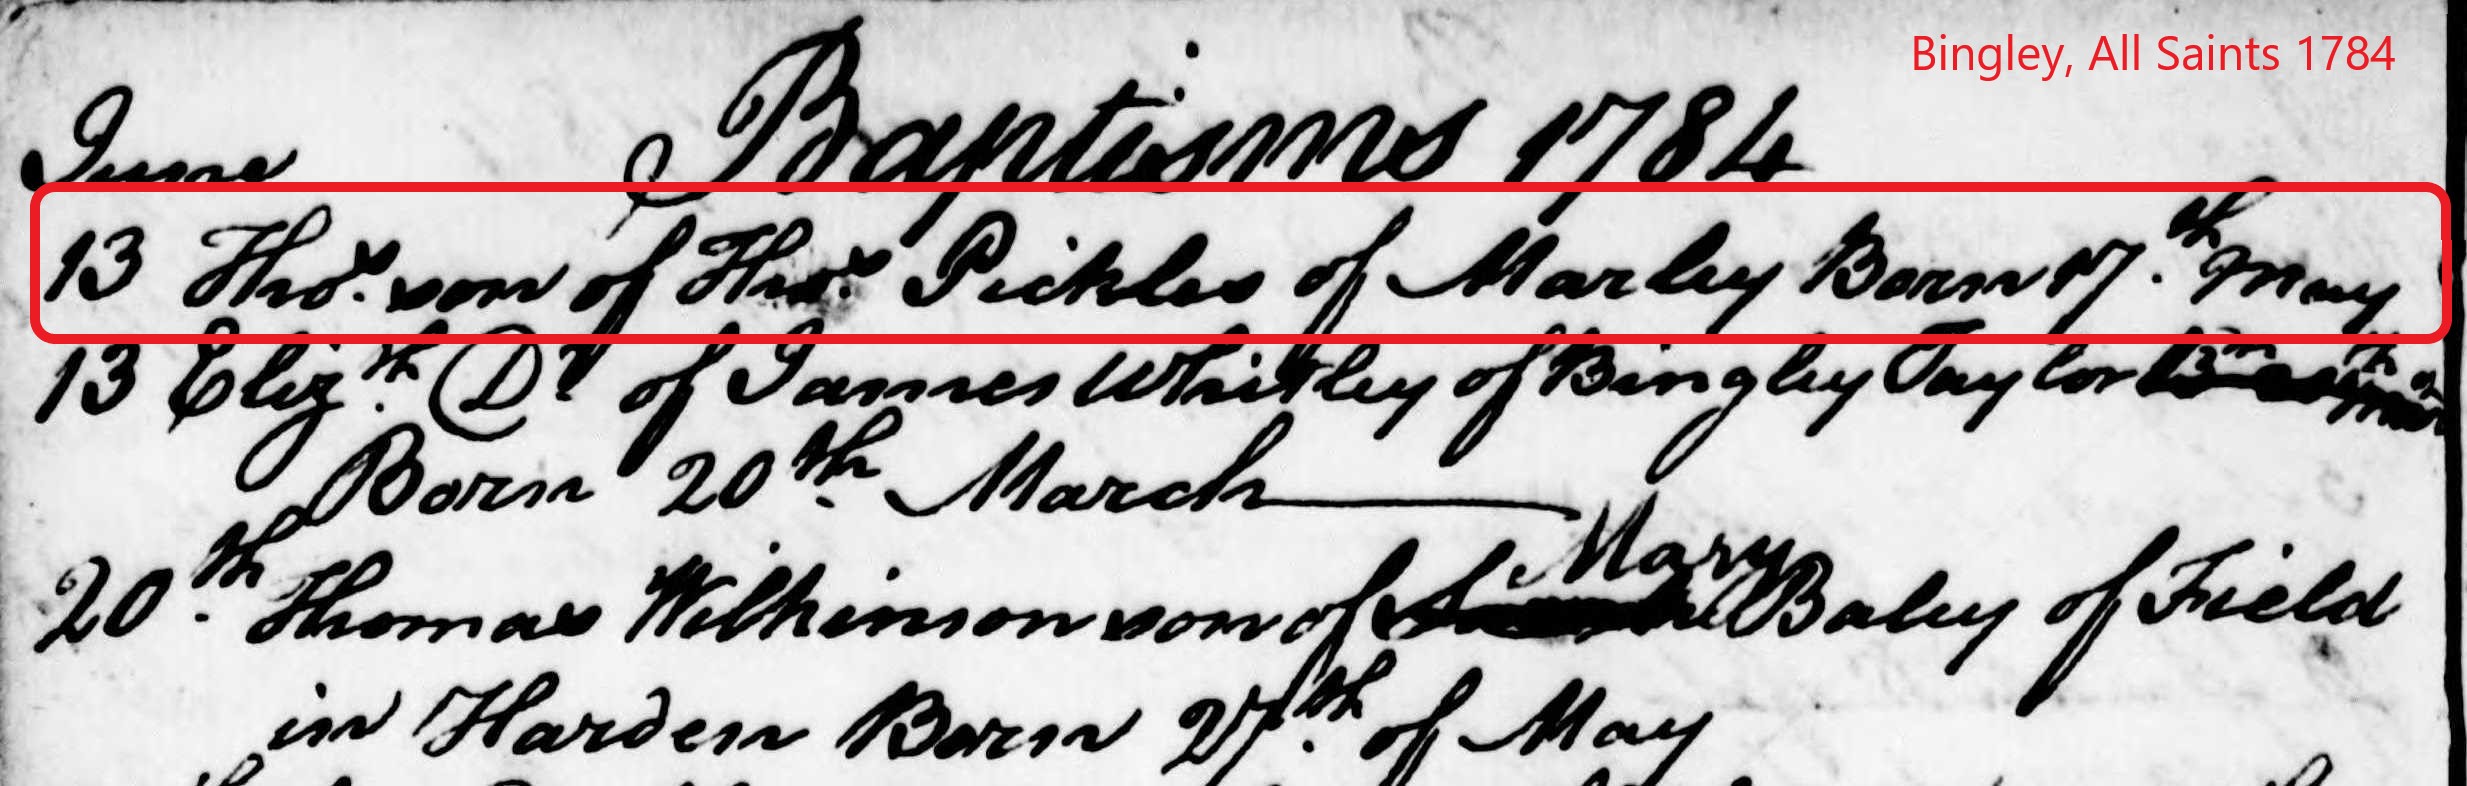 Bingley, All Saints 1784
Baptisms 1784
June
13 Thos. son of Thos. Pickles of Marley Born 17.th May
13 Eliz.th Dr of James Whitley of Bingley Taylor
Born 20th March
20.th Thomas Wilkinson son of Mary Baley of Field
in Harden Born 27.th of May